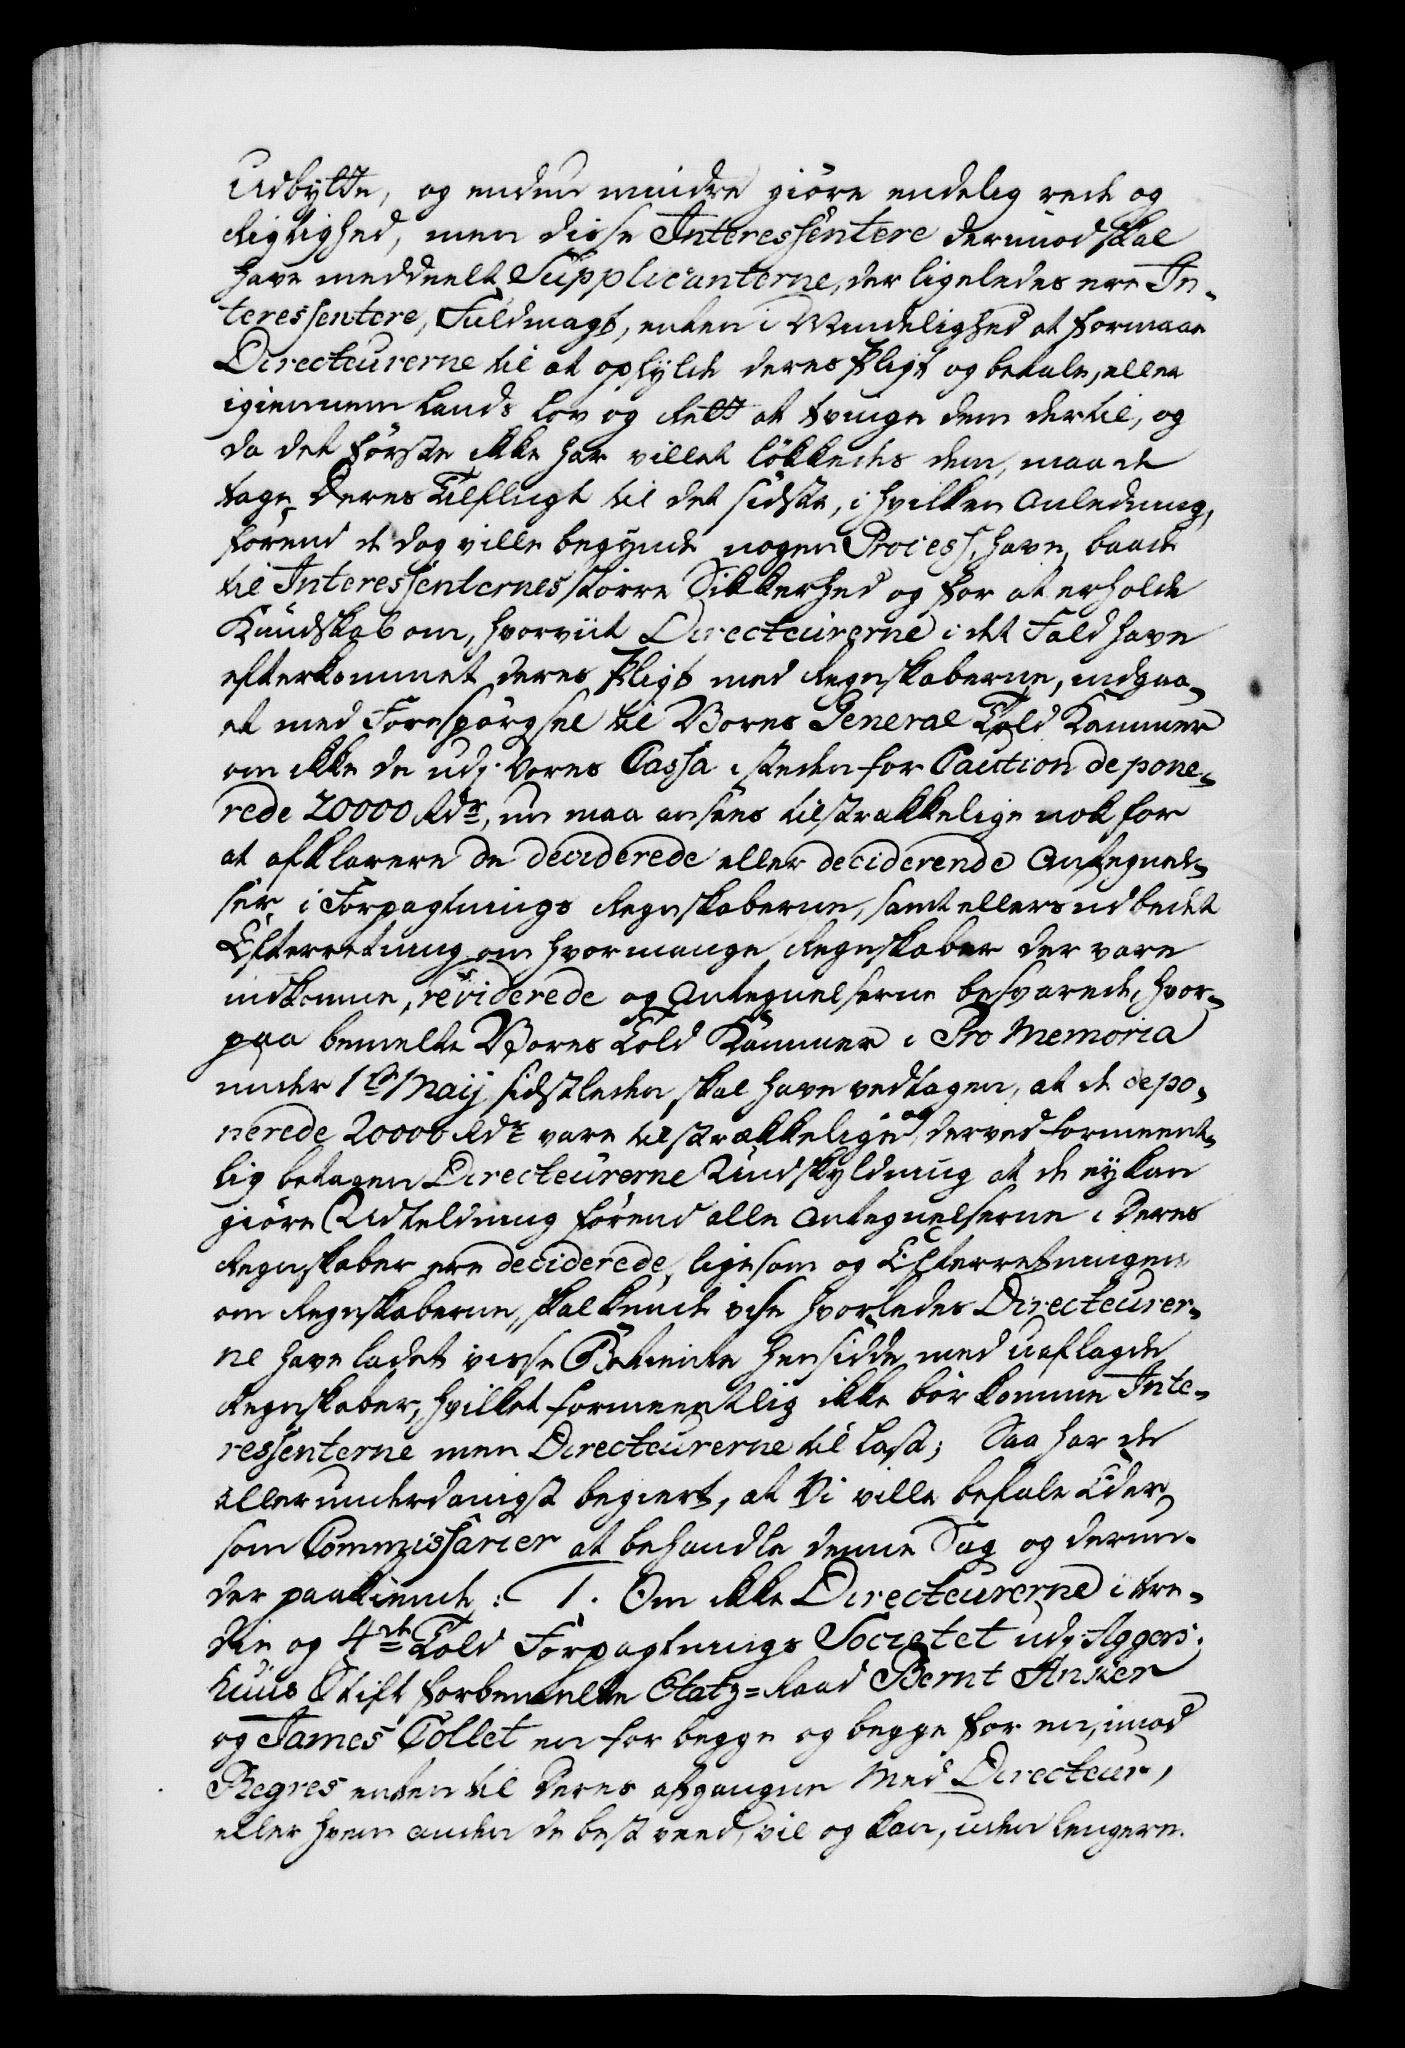 Udbytte, og endnu mindre giöre endelig rede og
Rigtighed, men disse Interessentere derimod skal
have meddeelt Supplicanterne, der ligeledes ere In-
teressentere, Fuldmagt, enten i Mindelighed at formaae
Directeurerne til at opfylde deres Pligt og betale, eller
igiennem Lands Lov og Rett at tvinge dem dertil, og
da det første ikke har villet løkkedes dem, maa de
tage Deres Tilflugt til det sidste, i hvilken Anledning,
førend de dog ville begynde nogen Process, have, baade
til Interessenternes större Sikkerhed og for at erholde
Kundskab om, hvorviit Directeurerne i det Fald have
efterkommet deres Pligt med Regnskaberne, indgaa-
et med Forespørgsel til Vores General Told Kammer
om ikke de udj Vores Cassa isteden for Caution depone-
rede 20000 Rdr, nu maa ansees tilstrækkelige nok for
at afklarere de deciderede eller deciderende Antegnel-
ser i Forpagtnings Regnskaberne, samt ellers udbedet
Efterretning om hvormange Regnskaber der vare
indkomne, reviderede og Antegnelserne besvarede, hvor-
paa bemelte Vores Told Kammer i Pro Memoria
under 1ste Maij sidstleden skal have vedtagen, at de depo-
nerede 20000 Rdr vare tilstrækkelige og derved formeent-
lig betagen Directeurerne Undskyldning at de ey kan
giöre Udteldning førend alle Antegnelserne i Deres
Regnskaber ere deciderede, ligesom og Efterretningen
om Regnskaberne, skal kunde vise hvorledes Directeurer-
ne have ladet visse Betiente hensidde med uaflagde
Regnskaber, hvilket formeentlig ikke bör komme Inte-
ressenterne men Directeurerne til Last; Saa har de
allerunderdanigst begiert, at Vi ville befale Eder
som Commissarier at behandle denne Sag og derun-
der paakiende: 1. Om ikke Directeurerne i tre-
die og 4de Told Forpagtnings Societet udj Aggers-
huus Stift forbemelte Etatz-Raad Bernt Anker
og James Collet en for begge og begge for en, imod
Regres enten til Deres afgangne Med Directeur,
eller hvem anden de best veed, vil og kan, uden lengere